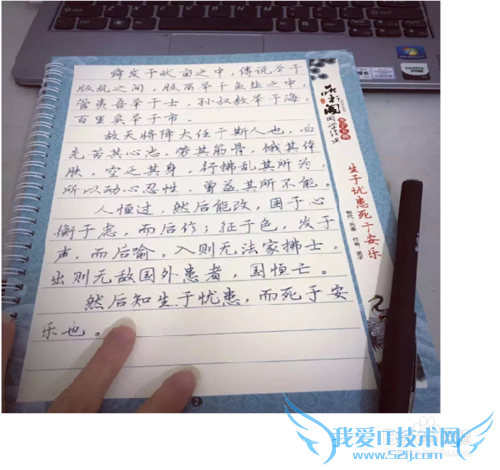 舜发于畎亩之中，傅说举于
版筑之间，胶鬲举于鱼盐之中，
管夷吾举于士，孙叔敖举于海，
百里奚举于市。
故天将降大任于斯人也，必
先苦其心志，劳其筋骨，饿其体
肤，空乏其身，行拂乱其所为，
所以动心忍性，曾益其所不能。
人恒过，然后能改，困于心
衡于虑，而后作；征于色，发于
声，而后喻。入则无法家拂士，
出则无敌国外患者，国恒亡。
然后知生于忧患，而死于安
乐也。
生于忧患死于安乐
2
我爱IT技术网
www.52ij.com